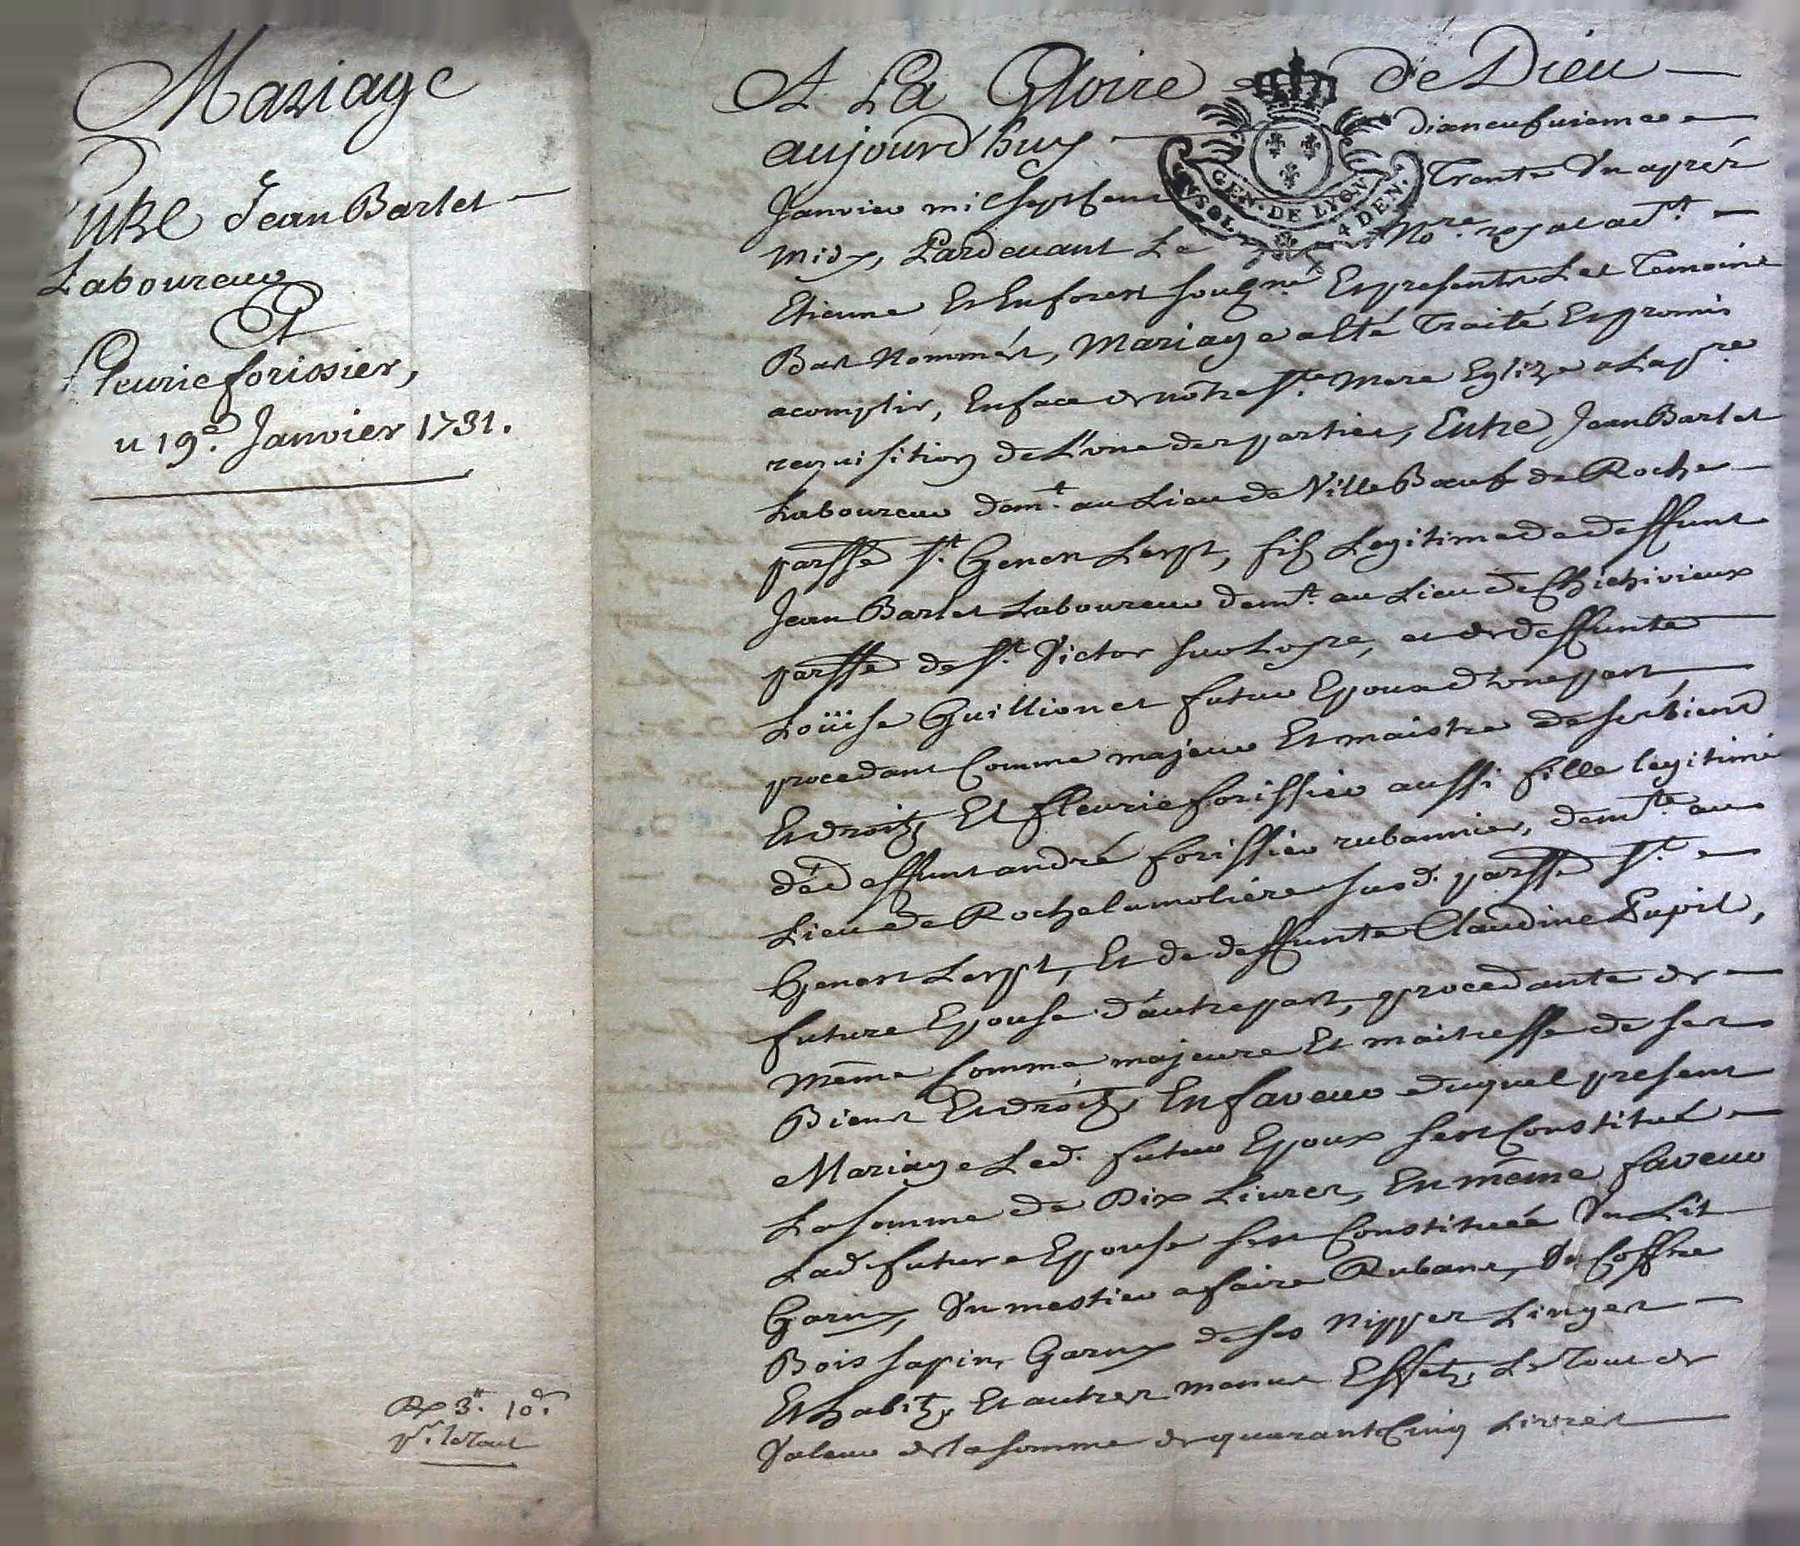 Mariage
Entre Jean Barlet
Laboureur
Et
fleurie forissier,
u 19.e Janvier 1731.
3.# 10.d
p.r le tout
A La Gloire de Dieu
aujourd'huy dixneufuieme
Janvier mil sept Cent Trente Un aprés
midy, Pardevant Le No.re royal ad.t
GEN. DE LYON
UN SOL 4 DEN.
Etienne En forest sousg.né Et presents Les Temoins
Bas Nommés, Mariage a èté Traité Et promis
acomplir, En face de nôtre S.te Mere Eglize a La p.re
requisition de L'une des parties, Entre Jean Barlet
Laboureur dem.t au Lieu de Ville Bœuf de Roche
parsse S.t Genest Lerpt, fils Legitime de deffunt
Jean Barlet Laboureur dem.t au Lieu de Chichivieux
parsse de S.t Victor sur Loyre, et de deffunte
Loüise Guillionet futur Epoux d'une part
procedant Comme majeur Et maistre de ses biens
Et droits, Et fleurie forissier aussi fille legitime
de deffunt andré forissier rubannier, dem.te au
Lieu de Rochelamoliere susd. parsse S.t
Genest Lerpt, Et de deffunte Claudine Papit,
future Epouse d'autre part, procedante de
même Comme majeure Et maitresse de ses
Biens Et droits, En faveur duquel present
Mariage Led. futur Epoux sest Constitué
La somme de Dix Livres, En même faveur
Lad. future Epouse sest Constituée Un Lit
Garny, Un mestier a faire Rubans, Un Coffre
Bois sapin, Garny de ses nippes Linges
Et habits, Et autres menus Effets, Le Tout de
Valeur de la somme de quarante Cinq Livres